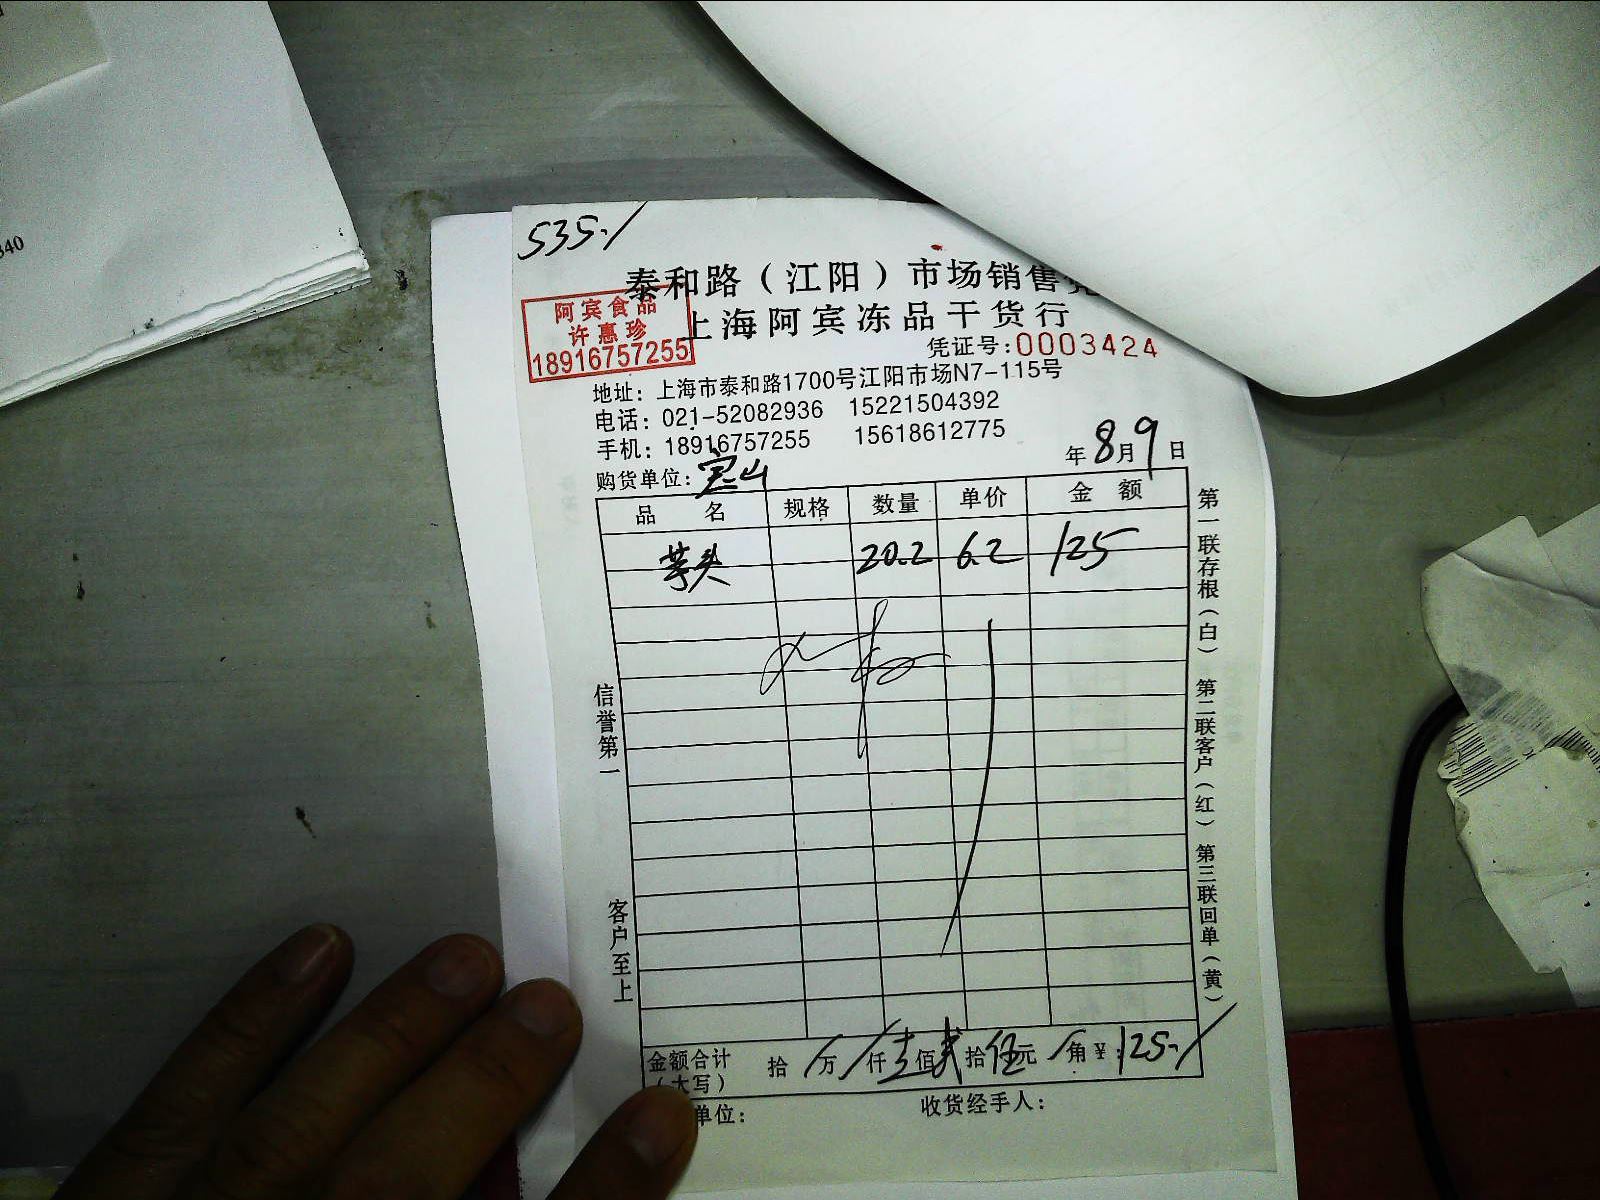 340
535./
泰和路（江阳）市场销售
上海阿宾冻品干货行
阿宾食品
许惠珍
18916757255
凭证号:0003424
地址：上海市泰和路1700号江阳市场N7-115号
电话：021-52082936 15221504392
手机：18916757255 15618612775
年8月9日
购货单位：宝山
品名 规格 数量 单价 金额
芋头 20.2 6.2 125
金额合计（大写） 拾/万/仟壹佰贰拾伍元/角¥:125./
单位: 收货经手人:
信誉第一
客户至上
第一联存根（白） 第二联客户（红） 第三联回单（黄）